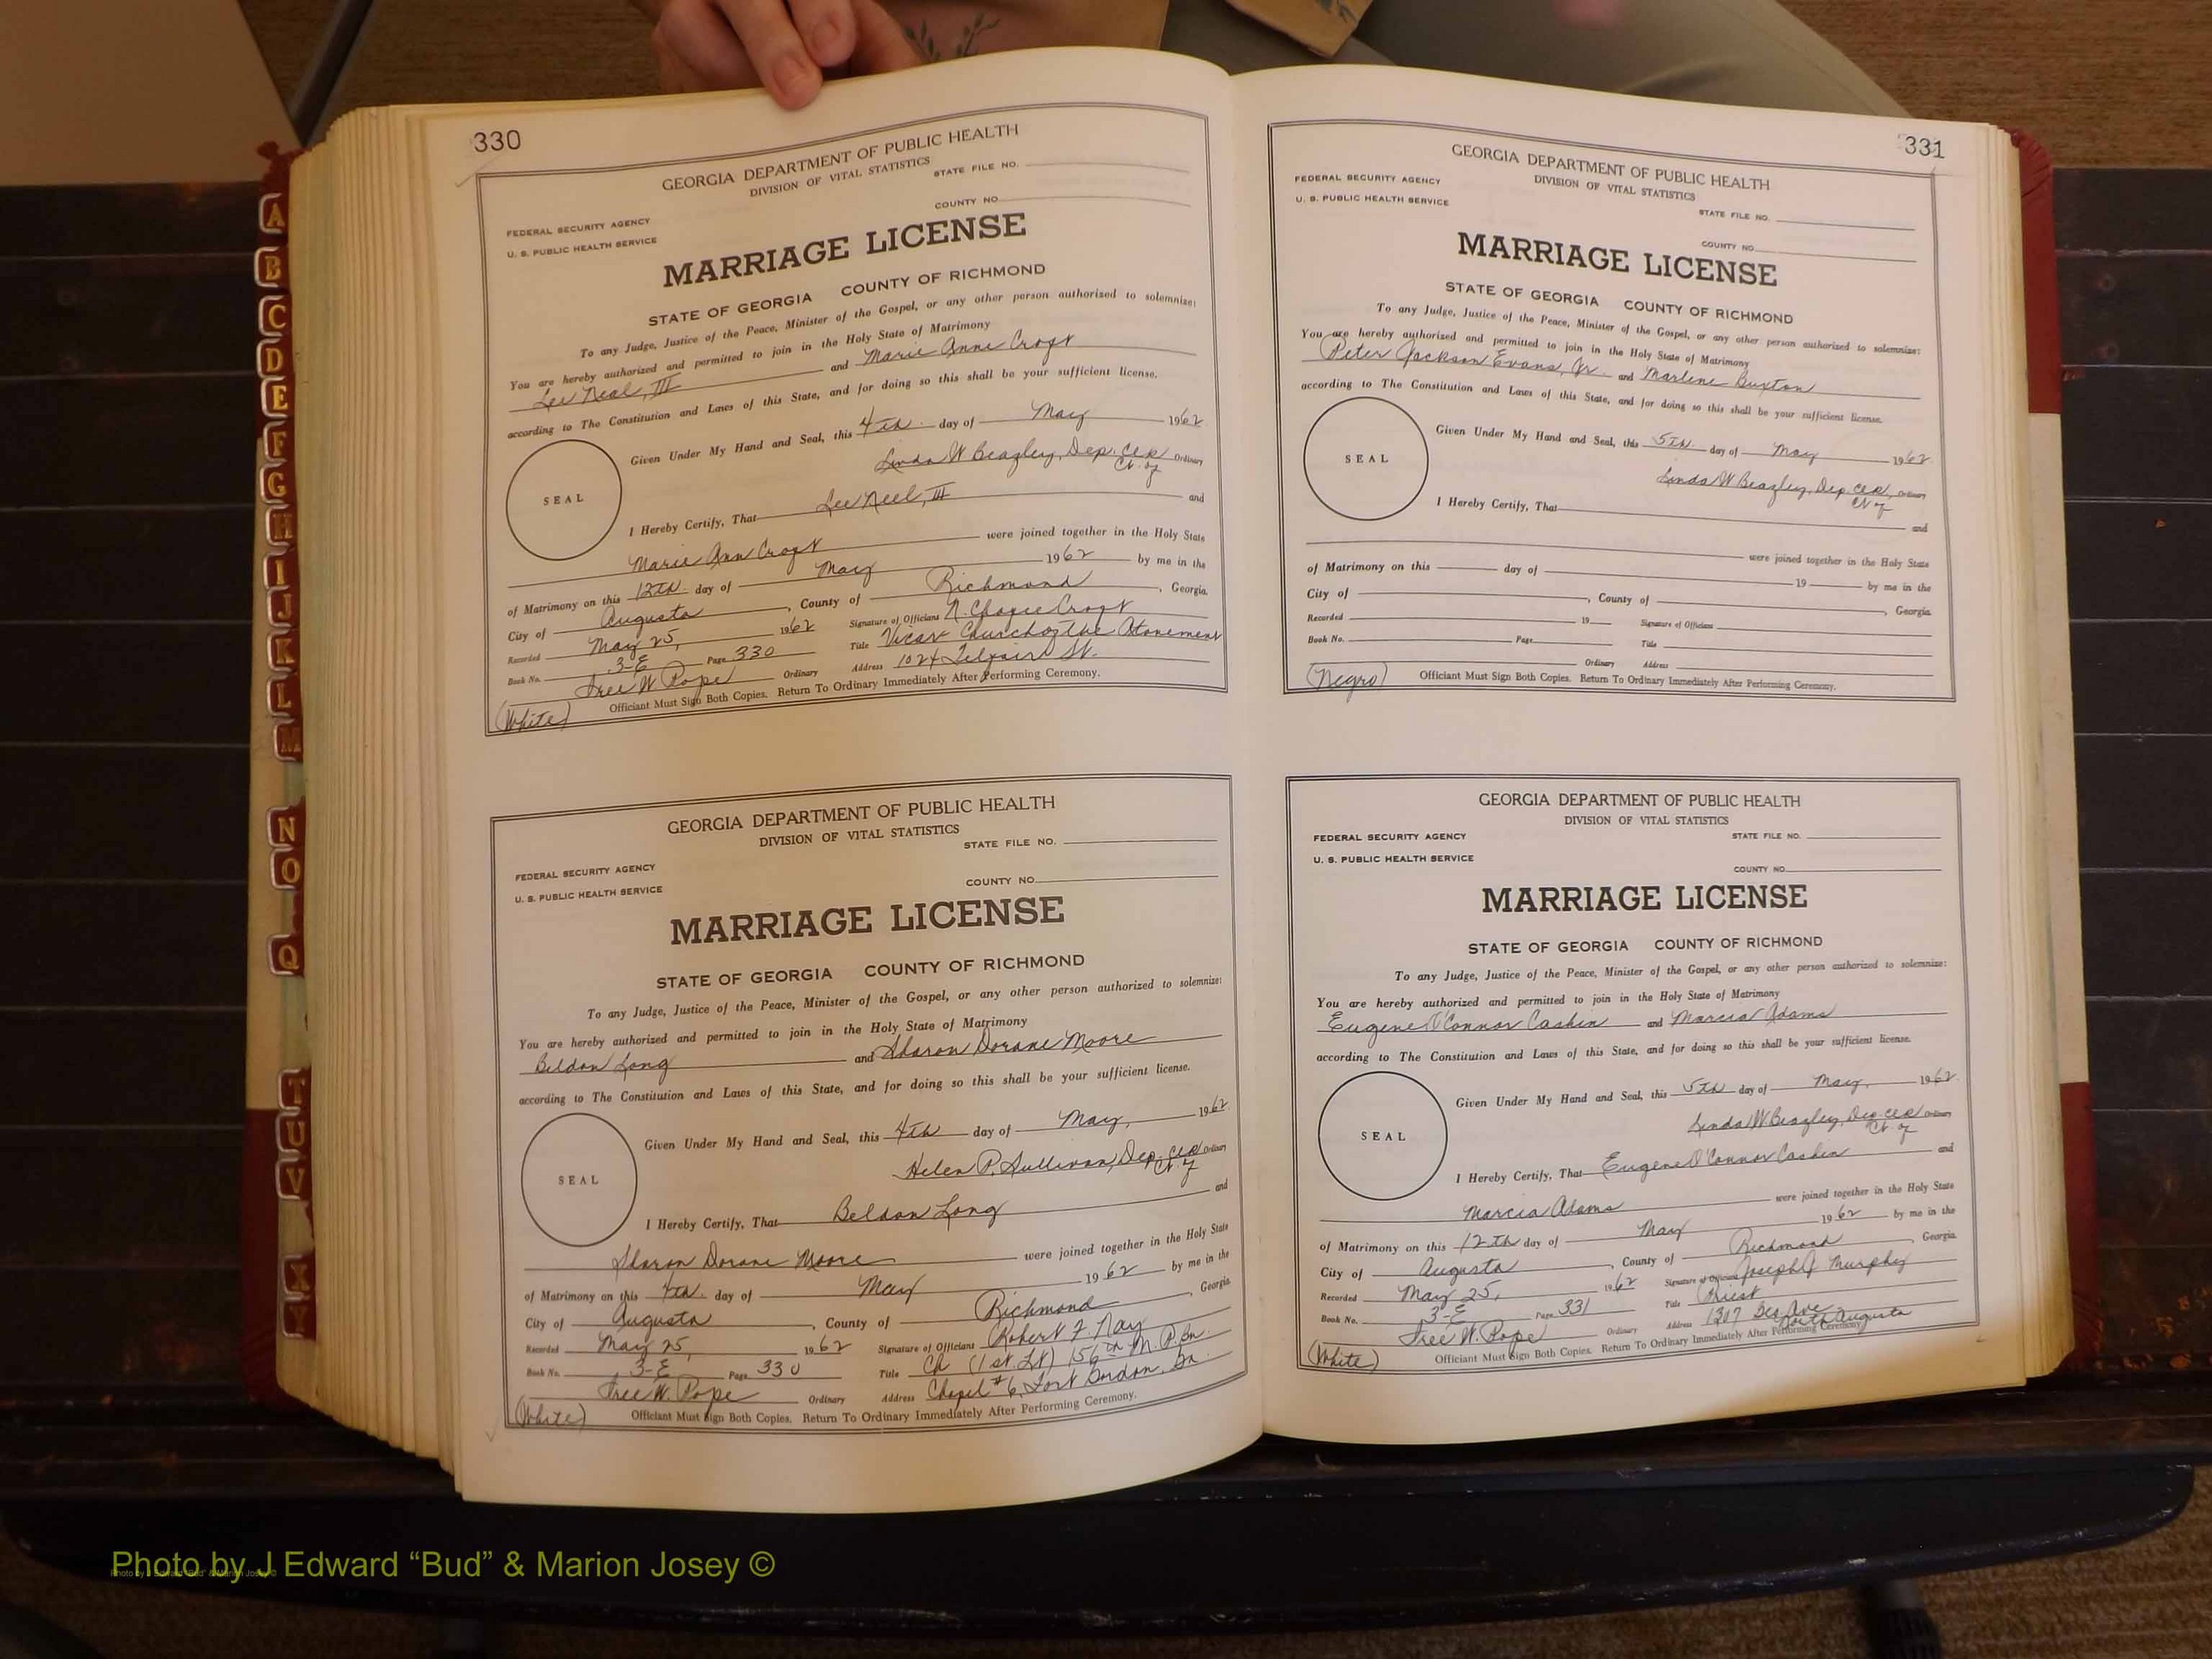 330
GEORGIA DEPARTMENT OF PUBLIC HEALTH
DIVISION OF VITAL STATISTICS
STATE FILE NO.
COUNTY NO.
FEDERAL SECURITY AGENCY
U. S. PUBLIC HEALTH SERVICE
MARRIAGE LICENSE
STATE OF GEORGIA COUNTY OF RICHMOND
To any Judge, Justice of the Peace, Minister of the Gospel, or any other person authorized to solemnize:
You are hereby authorized and permitted to join in the Holy State of Matrimony
Lee Neal, III and Marie Anne Croft
according to The Constitution and Laws of this State, and for doing so this shall be your sufficient license.
Given Under My Hand and Seal, this 4th day of May 1962
Linda W Beazley, Dep. Clk Ordinary
Ct. of
SEAL
I Hereby Certify, That Lee Neel, III and
Marie Ann Croft were joined together in the Holy State
of Matrimony on this 12th day of May 1962 by me in the
City of Augusta, County of Richmond, Georgia.
Recorded May 25, 1962 Signature of Officiant Croft
Book No. 3-E Page 330 Title Vicar Church of the Atonement
Free W Pope Ordinary Address 1024 Telfair St.
(White) Officiant Must Sign Both Copies. Return To Ordinary Immediately After Performing Ceremony.
GEORGIA DEPARTMENT OF PUBLIC HEALTH
DIVISION OF VITAL STATISTICS
STATE FILE NO.
FEDERAL SECURITY AGENCY
COUNTY NO.
U. S. PUBLIC HEALTH SERVICE
MARRIAGE LICENSE
STATE OF GEORGIA COUNTY OF RICHMOND
To any Judge, Justice of the Peace, Minister of the Gospel, or any other person authorized to solemnize:
You are hereby authorized and permitted to join in the Holy State of Matrimony
Beldon Long and Sharon Dorane Moore
according to The Constitution and Laws of this State, and for doing so this shall be your sufficient license.
Given Under My Hand and Seal, this 4th day of May, 1962
Helen P. Sullivan, Dep. Clk Ordinary
Ct. of
SEAL
I Hereby Certify, That Beldon Long and
Sharon Dorane Moore were joined together in the Holy State
of Matrimony on this 4th day of May 1962 by me in the
City of Augusta, County of Richmond, Georgia.
Recorded May 25, 1962 Signature of Officiant Robert F. Nay
Book No. 3-E Page 330 Title Ch (1st. Lt) 156th M. P. Bn.
Free W. Pope Ordinary Address Chapel #6, Fort Gordon, Ga.
(White) Officiant Must Sign Both Copies. Return To Ordinary Immediately After Performing Ceremony.
331
GEORGIA DEPARTMENT OF PUBLIC HEALTH
DIVISION OF VITAL STATISTICS
FEDERAL SECURITY AGENCY
U. S. PUBLIC HEALTH SERVICE
STATE FILE NO.
COUNTY NO.
MARRIAGE LICENSE
STATE OF GEORGIA COUNTY OF RICHMOND
To any Judge, Justice of the Peace, Minister of the Gospel, or any other person authorized to solemnize:
You are hereby authorized and permitted to join in the Holy State of Matrimony
Peter Jackson Evans, Jr. and Marlene Buxton
according to The Constitution and Laws of this State, and for doing so this shall be your sufficient license.
Given Under My Hand and Seal, this 5th day of May 1962
Linda W Beazley, Dep. Clk, Ordinary
Ct of
SEAL
I Hereby Certify, That and
were joined together in the Holy State
of Matrimony on this day of 19 by me in the
City of , County of , Georgia.
Recorded 19 Signature of Officiant
Book No. Page Title
Ordinary Address
(Negro) Officiant Must Sign Both Copies. Return To Ordinary Immediately After Performing Ceremony.
GEORGIA DEPARTMENT OF PUBLIC HEALTH
DIVISION OF VITAL STATISTICS
FEDERAL SECURITY AGENCY STATE FILE NO.
U. S. PUBLIC HEALTH SERVICE
COUNTY NO.
MARRIAGE LICENSE
STATE OF GEORGIA COUNTY OF RICHMOND
To any Judge, Justice of the Peace, Minister of the Gospel, or any other person authorized to solemnize:
You are hereby authorized and permitted to join in the Holy State of Matrimony
Eugene O'Connor Cashin and Marcia Adams
according to The Constitution and Laws of this State, and for doing so this shall be your sufficient license.
Given Under My Hand and Seal, this 5th day of May, 1962
Linda W Beazley, Dep. Clk Ordinary
Ct. of
SEAL
I Hereby Certify, That Eugene O'Connor Cashin and
Marcia Adams were joined together in the Holy State
of Matrimony on this 12th day of May 1962 by me in the
City of Augusta, County of Richmond, Georgia.
Recorded May 25, 1962 Signature of Officiant Joseph J Murphy
Book No. 3-E Page 331 Title Priest
Free W. Pope Ordinary Address 1307 Ga Ave. North Augusta
(White) Officiant Must Sign Both Copies. Return To Ordinary Immediately After Performing Ceremony.
A
B
C
D
E
F
G
H
I
J
K
L
M
N
O
Q
T
U
V
X
Y
Photo by J Edward “Bud” & Marion Josey ©
Photo by J Edward "Bud" & Marion Josey ©